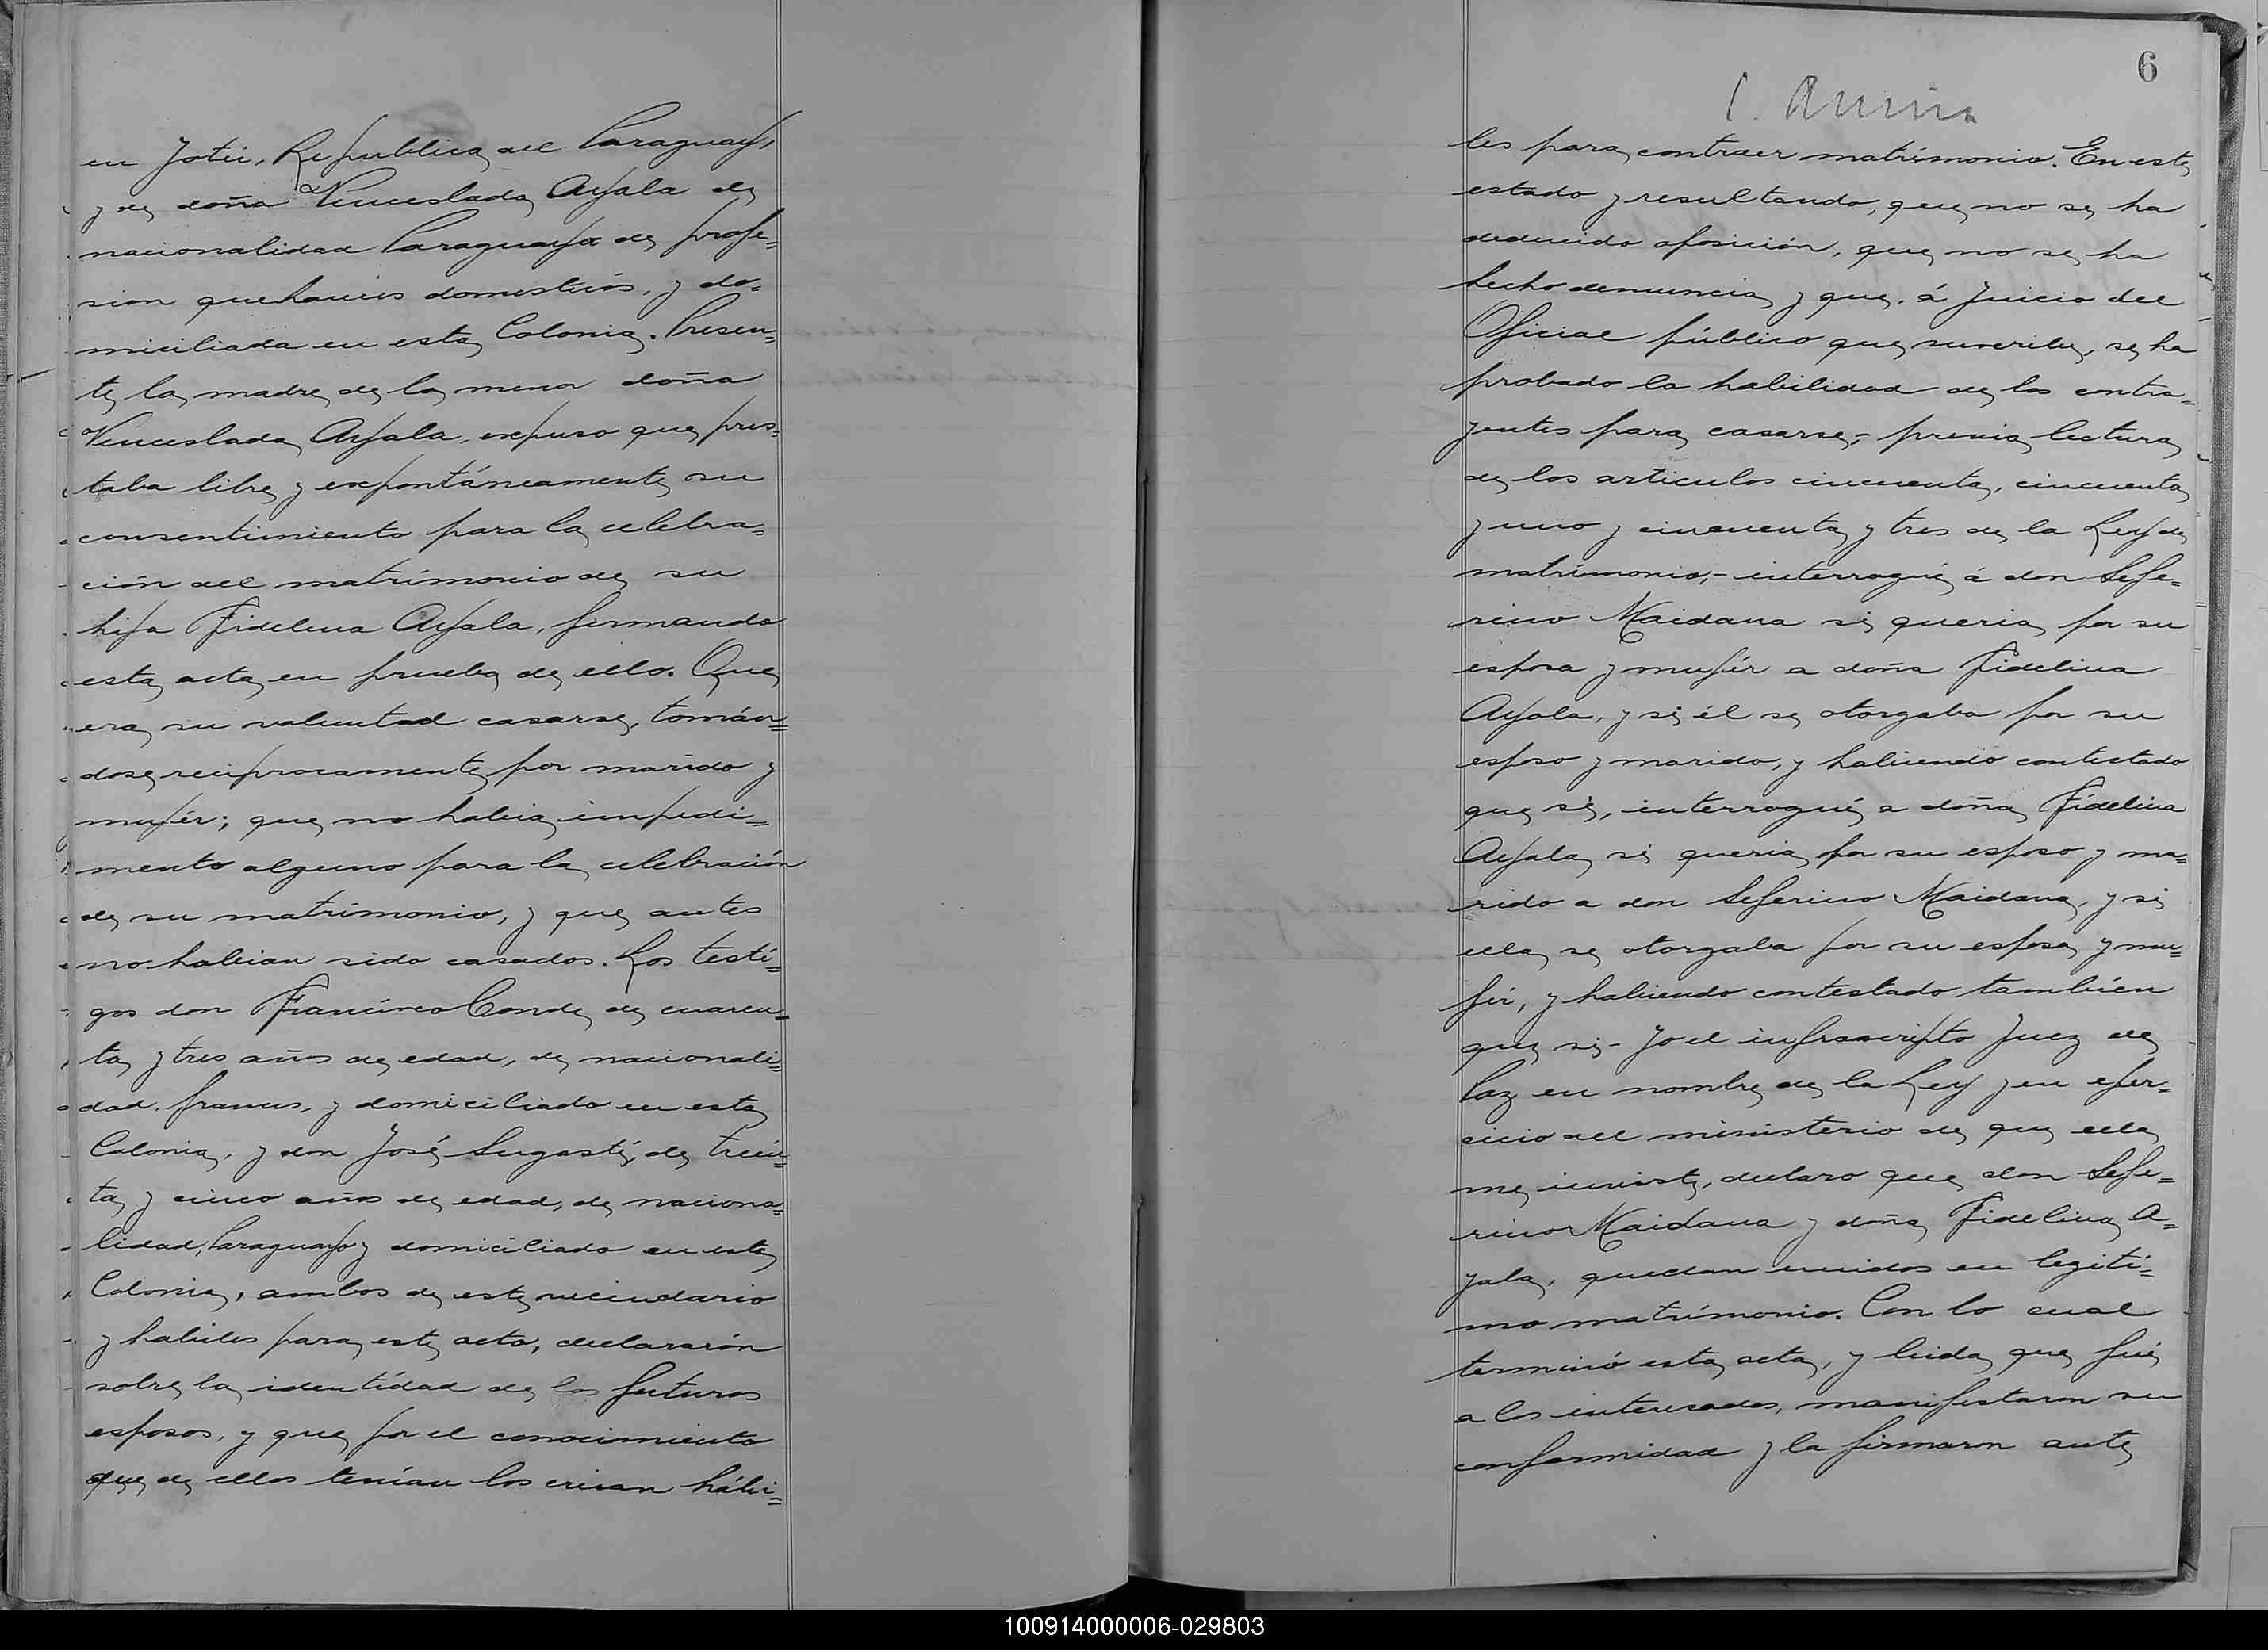 en Jotii, Republica del Paraguay,
y de doña Venceslada Ayala de
nacionalidad Paraguaya de profe=
sion quehaceres domesticos, y do=
miciliada en esta Colonia. Presen=
te la madre de la menor doña
Venceslada Ayala, expuso que pres=
taba libre y expontáneamente su
consentimiento para la celebra=
ción del matrimonio de su
hija Fidelina Ayala, firmando
esta acta en prueba de ello. Que
era su voluntad casarse, tomán=
dose reciprocamente por marido y
mujér; que no habia impedi=
mento alguno para la celebración
de su matrimonio, y que antes
no habian sido casados. Los testi=
gos don Francisco Conde de cuaren=
ta y tres años de edad, de nacionali=
dad frances, y domiciliado en esta
Colonia, y don José Sugasti, de trein=
ta y cinco años de edad, de naciona=
lidad Paraguayo y domiciliado en esta
Colonia, ambos de este vecindario
y habiles para este acto, declararón
sobre la identidad de los futuros
esposos, y que por el conocimiento
que de ellos tenían los creian hábi=
6
les para contraer matrimonio. En este
estado y resultando, que no se ha
deducido oposición, que no se ha
hecho denuncia y que, á juicio del
Oficial público que suscribe, se ha
probado la habilidad de los contra=
yentes para casarse,- previa lectura
de los articulos cincuenta, cincuenta
y uno y cincuenta y tres de la Ley de
matrimonio,- interrogué á don Sefe=
rino Maidana si queria por su
esposa y mujér a doña Fidelina
Ayala, y si él se otorgaba por su
esposo y marido, y habiendo contestado
que si, interrogué a doña Fidelina
Ayala si queria por su esposo y ma=
rido a don Seferino Maidana, y si
ella se otorgaba por su esposa y mu=
jér, y habiendo contestado también
que si- Yo el infrascripto Juez de
Paz en nombre de la Ley y en ejer=
cicio del ministerio de que ella
me inviste, declaro que don Sefe=
rino Maidana y doña Fidelina A=
yala, quedan unidos en legiti=
mo matrimonio. Con lo cual
terminó esta acta, y leida que fué
a los interesados, manifestaron su
conformidad y la firmaron ante
100914000006-029803